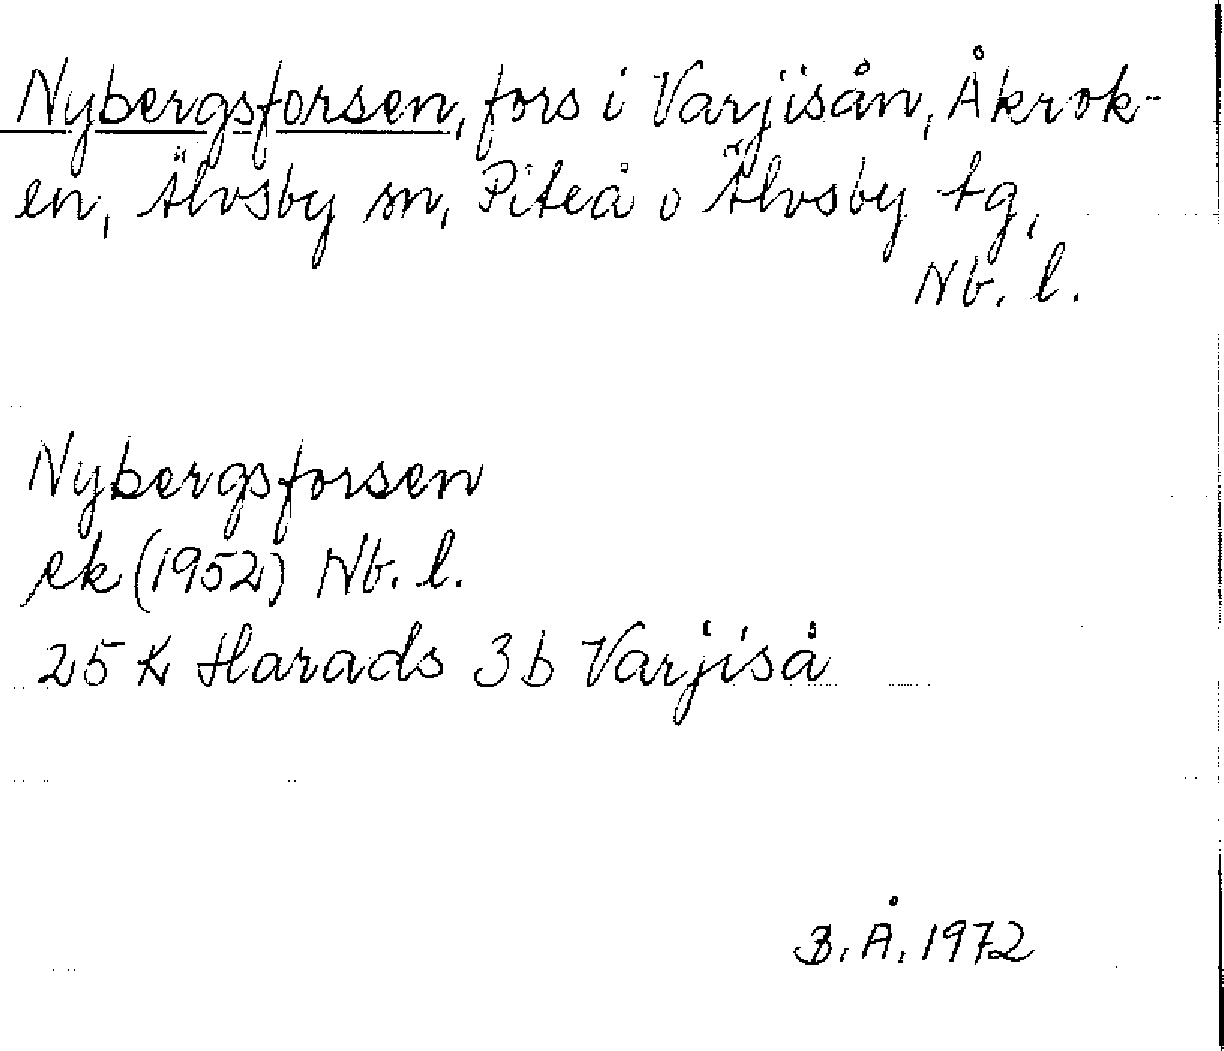 Nybergsforsen, fors i Varjisån, Åkrok-
en, Älvsby sn, Piteå o Älvsby tg,
Nb. l.
Nybergsforsen
ek (1952) Nb. l.
25 K Harads 3 b Varjiså
B. Å. 1972